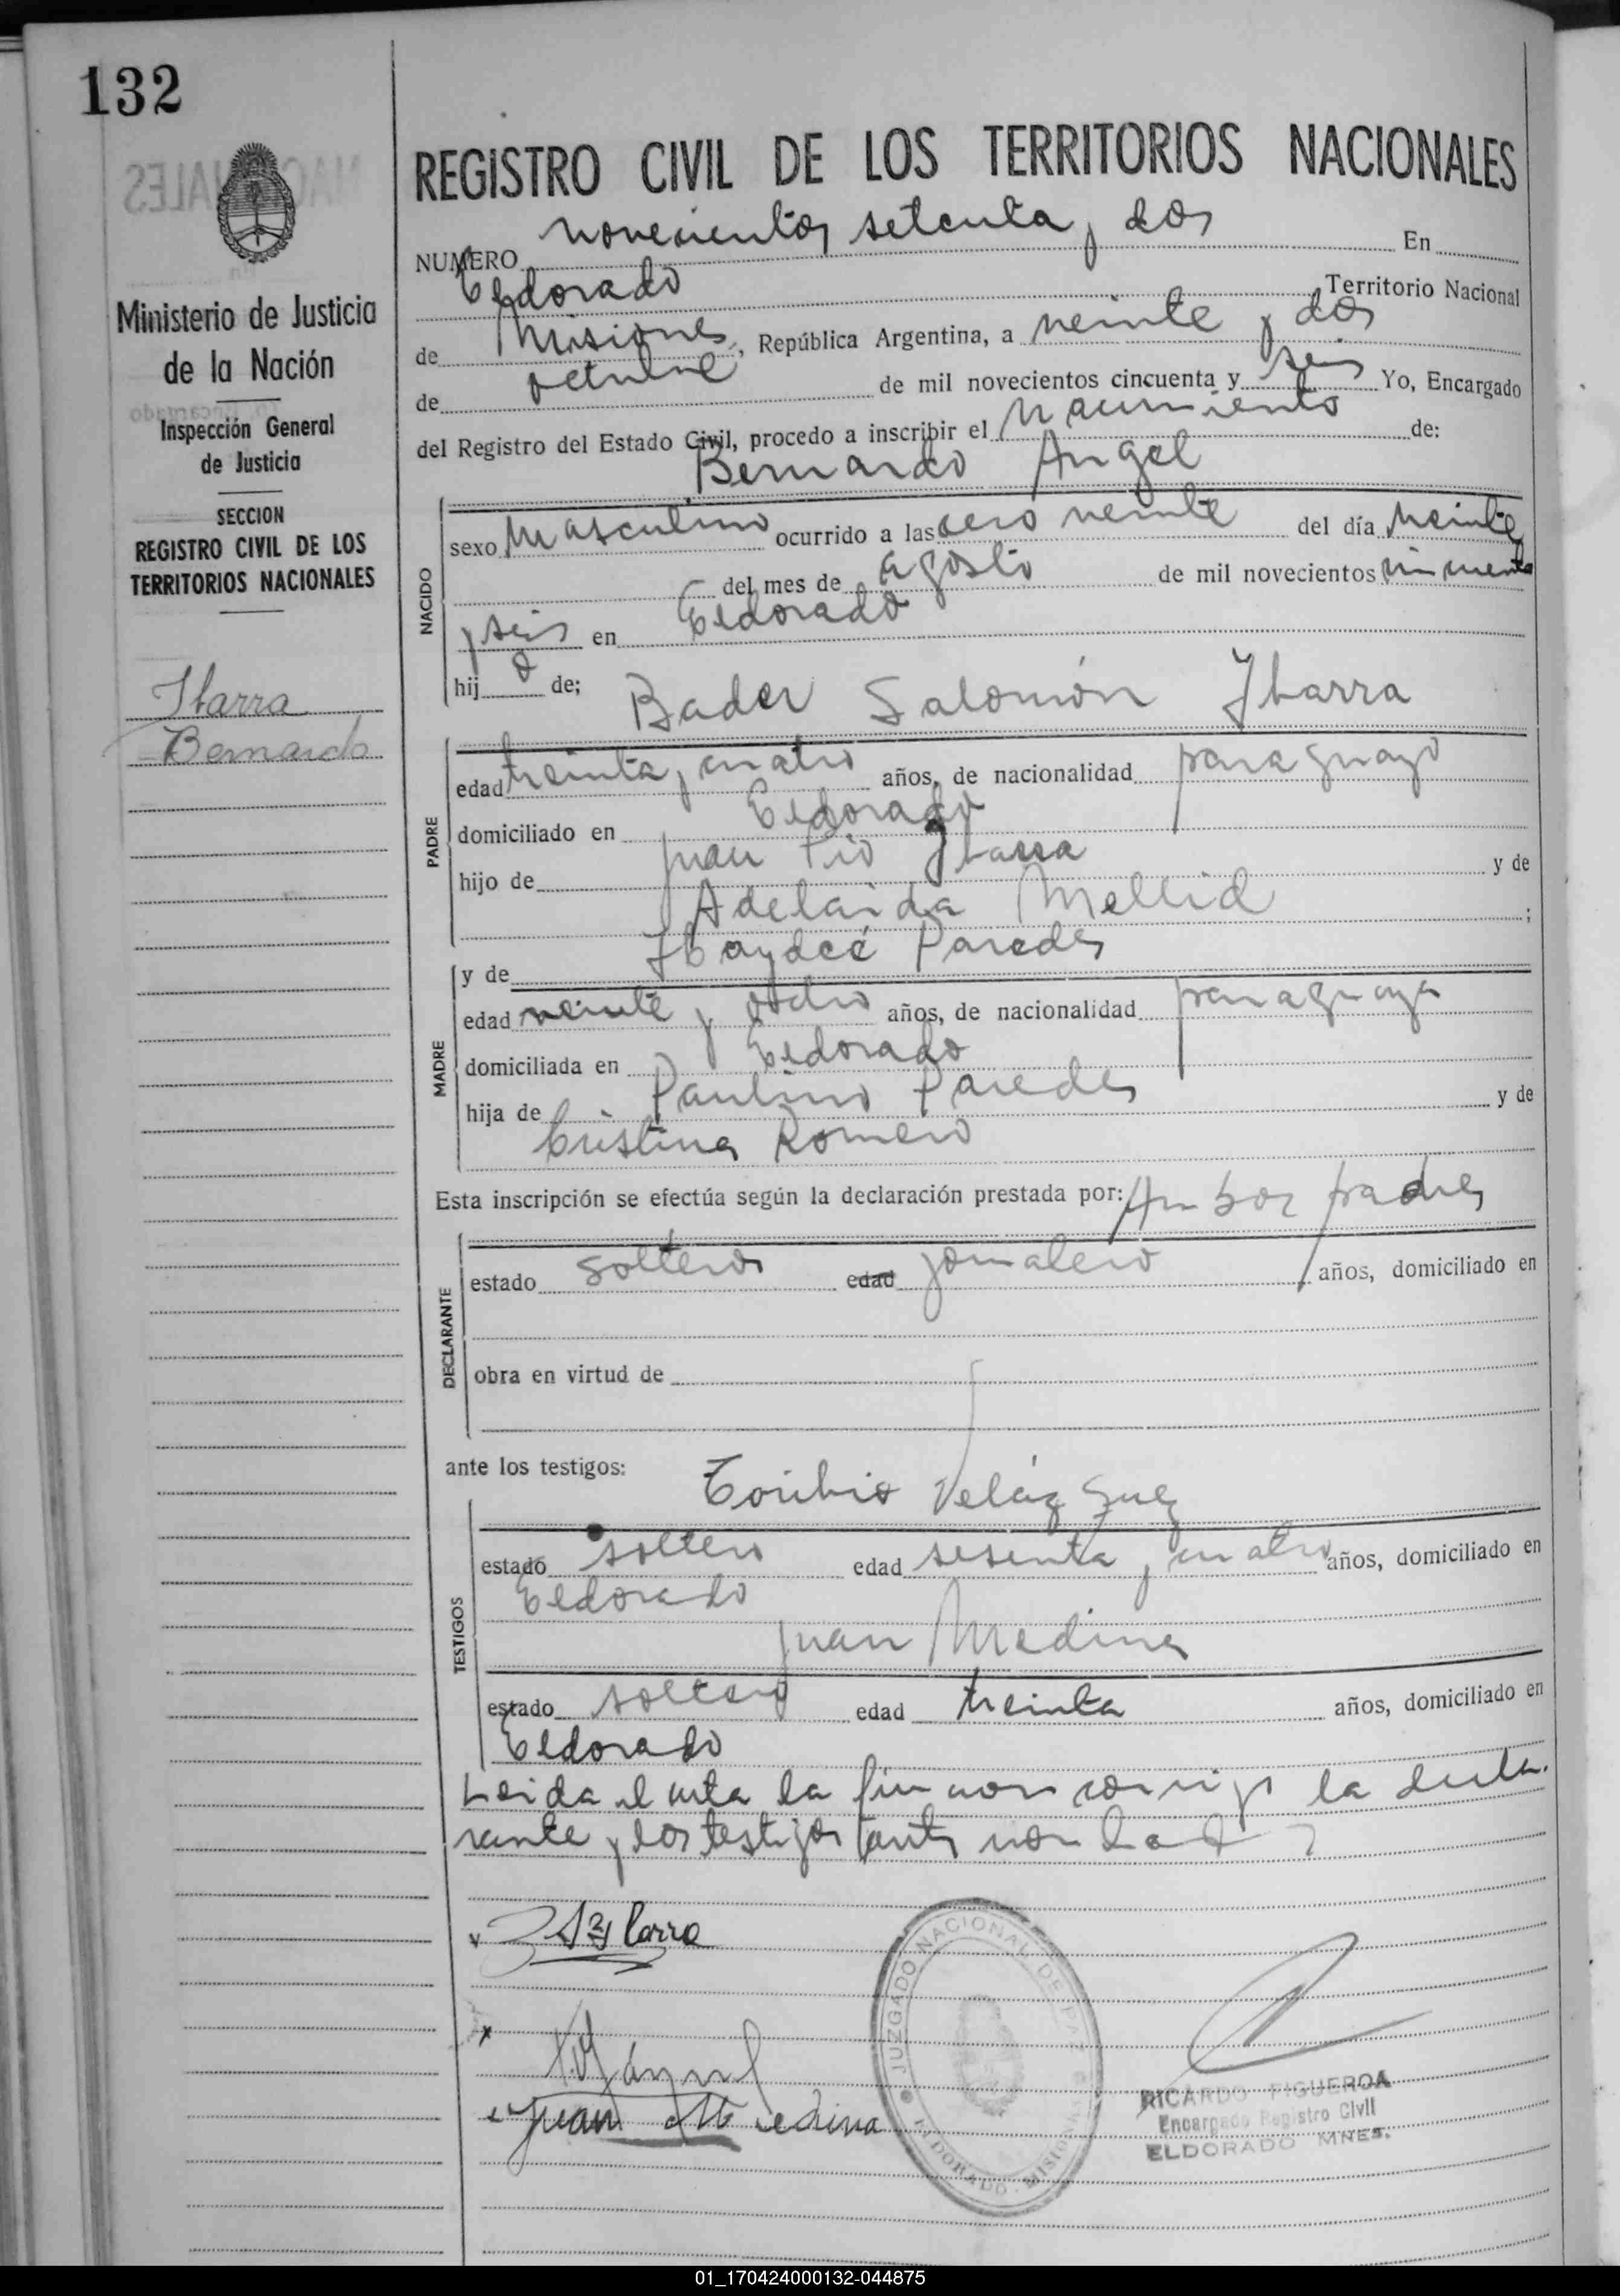 132
REGISTRO CIVIL DE LOS TERRITORIOS NACIONALES
Ministerio de Justicia
de la Nación
Inspección General
de Justicia
SECCION
REGISTRO CIVIL DE LOS
TERRITORIOS NACIONALES
Ibarra
Bernardo
NUMERO novecientos setenta y dos En
Eldorado Territorio Nacional
de Misiones, República Argentina, a veinte y dos
de octubre de mil novecientos cincuenta y seis Yo, Encargado
del Registro del Estado Civil, procedo a inscribir el nacimiento de:
Bernardo Angel
NACIDO
sexo masculino ocurrido a las cero veinte del día veinte
del mes de agosto de mil novecientos cincuenta
y seis en Eldorado
hijo de; Bader Salomón Ibarra
PADRE
edad treinta y cuatro años, de nacionalidad paraguayo
domiciliado en Eldorado
hijo de Juan Pio Ibarra y de
Adelaida Mellid ;
y de Haydeé Paredes
MADRE
edad veinte y ocho años, de nacionalidad paraguaya
domiciliada en Eldorado
hija de Paulino Paredes y de
Cristina Romero
Esta inscripción se efectúa según la declaración prestada por: Ambos padres
DECLARANTE
estado soltero edad jornalero años, domiciliado en
obra en virtud de
ante los testigos: Toribio Velázquez
TESTIGOS
estado soltero edad sesenta y cuatro años, domiciliado en
Eldorado
Juan Medina
estado soltero edad treinta años, domiciliado en
Eldorado
Leida el acta la firmaron conmigo la decla
rante y los testigos
Juan Medina
JUZGADO NACIONAL DE PAZ
ELDORADO - MISIONES
RICARDO FIGUEROA
Encargado Registro Civil
ELDORADO MNES.
01_170424000132-044875